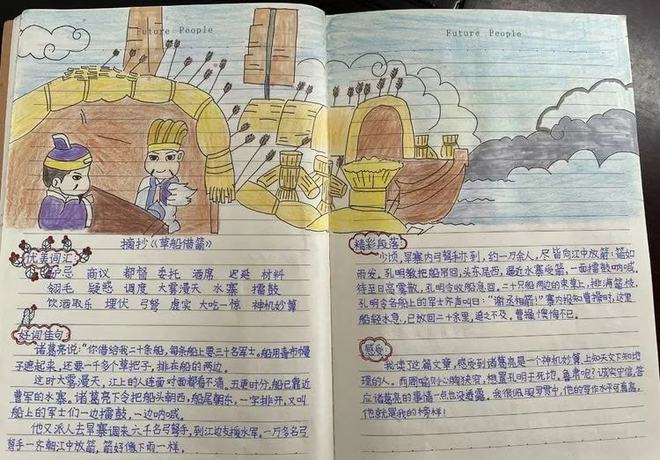 Future People
摘抄《草船借箭》
优美词汇
妒忌 商议 都督 委托 酒席 迟延 材料
翎毛 疑惑 调度 大雾漫天 水寨 擂鼓
饮酒取乐 埋伏 弓弩 虚实 大吃一惊 神机妙算
好词佳句
诸葛亮说:“你借给我二十条船,每条船上要三十名军士,船用青布幔
子遮起来,还要一千多个草把子,排在船的两边。
这时大雾漫天,江上的人连面对面都看不清,五更时分,船已靠近
曹军的水寨,诸葛亮下令把船头朝西,船尾朝东,一字排开,又叫
船上的军士们一边擂鼓,一边呐喊。
他又派人去旱寨调来六千名弓弩手,到江边支援水军,一万多名弓
弩手一齐朝江中放箭,箭好像下雨一样。
Future People
精彩段落
少顷,旱寨内弓弩手到,约一万余人,尽皆向江中放箭:箭如
雨发,孔明教把船吊回,头东尾西,逼近水寨受箭,一面擂鼓呐喊,
待至日高雾散,孔明令收船急回。二十只船两边的束草上,排满箭枝,
孔明令各船上的军士齐声叫曰:“谢丞相箭!”寨内报知曹操时,这里
船轻水急,已放回二十余里,追之不及,曹操懊悔不已。
感悟
我读了这篇文章,感受到诸葛亮是一个神机妙算,上知天文下知地
理的人,而周瑜则心胸狭窄,想置孔明于死地。鲁肃呢?诚实守信,答
应诸葛亮的事情一点也没透露,我很佩服罗贯中,他的写作水平可真高,
他就是我的榜样!